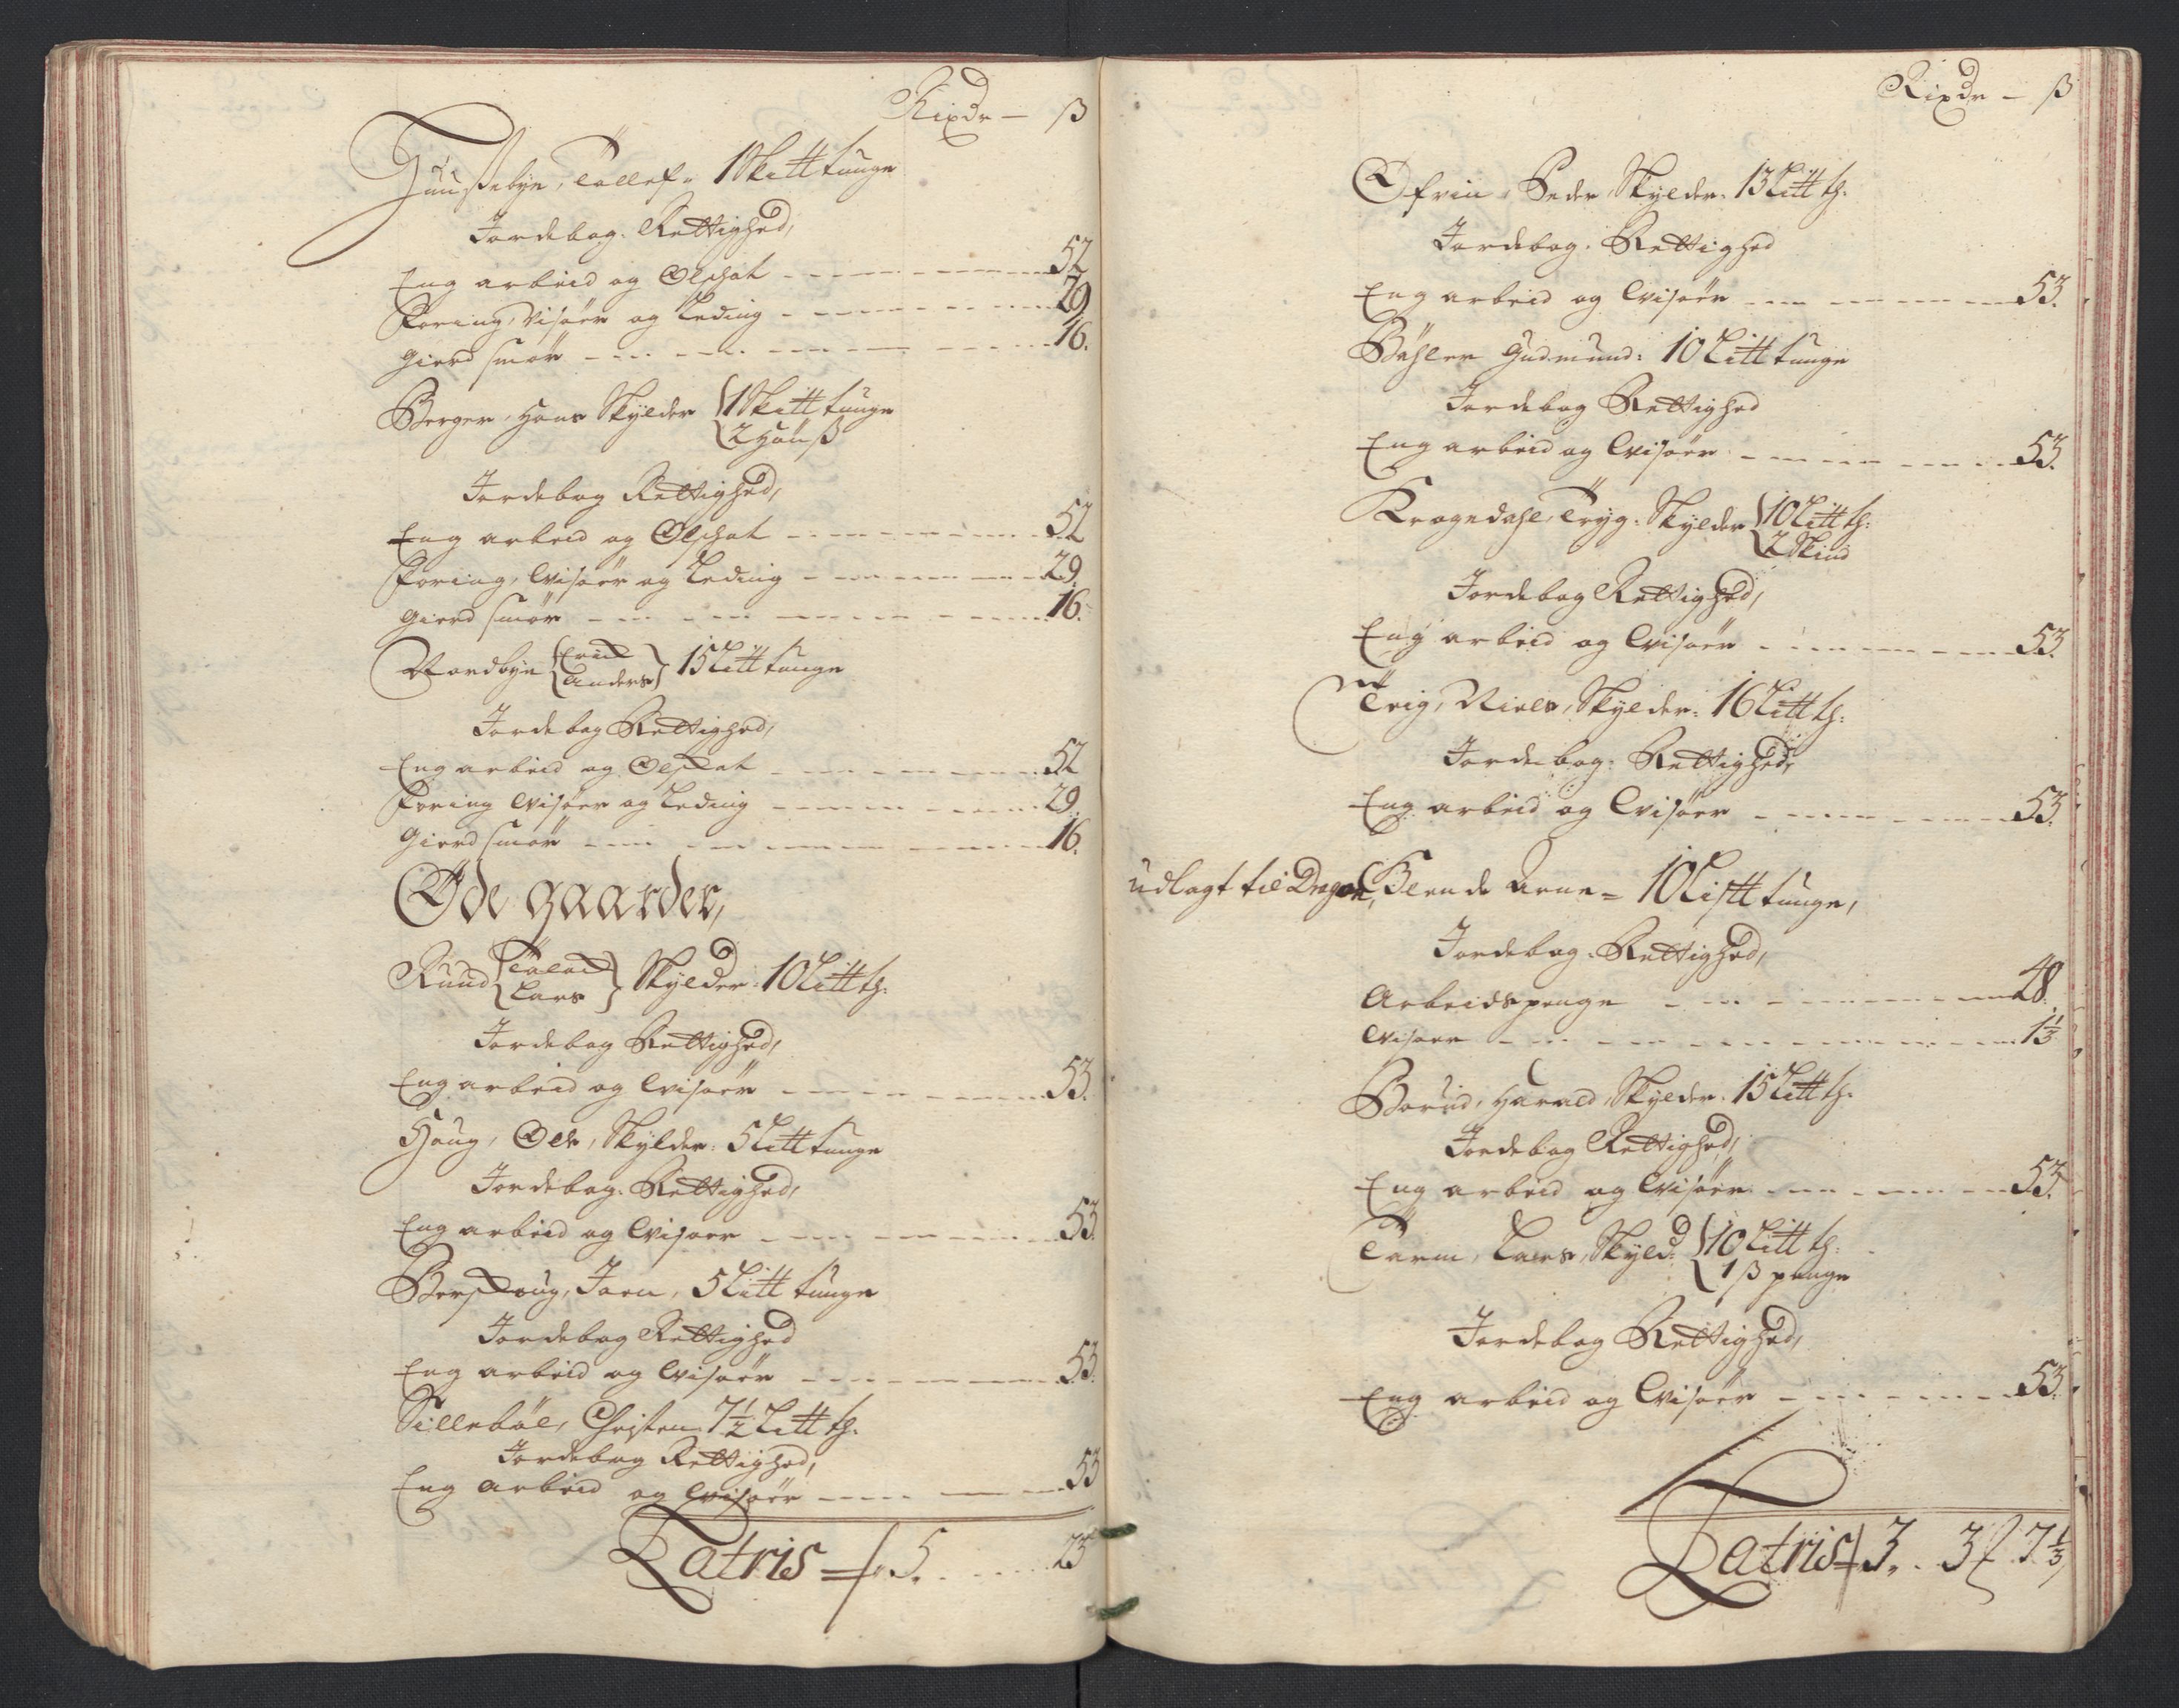 Rixdr — ß
Huusebye, Tollef = 1 Skitt tunge
Jordebog. Rettighed,
Eng arbeid og Olschat 52
Foring, Visøer og Leding 29
Gierd smør 16.
Berger, Hans Skylder 1 Skitt tunge
2 Høuß
Jordebog Rettighed,
Eng arbeid og Olschat 52
Foring, Wisøer og Leding 29.
Gierd smør 16.
Nordbye Erich Anders 15 Litt tunge
Jordebog Rettighed,
Eng arbeid og Olschat 52
Foring Wisøer og Leding 29.
Gierd smør 16.
Øde gaarder,
Ruud Lars Skylder. 10 Litt th:
Jordebog Rettighed,
Eng arbeid og Wisøer 53.
Houg, Ole, Skylder. 5 Litt tunge
Jordebog. Rettighed,
Eng arbeid og Wisøer 53.
Berschoug, Joen, 5 Litt tunge
Jordebog Rettighed
Eng arbeid og Wisøer 53.
Sillebøl, Christen 7½ Litt th.
Jordebog Rettighed,
Eng arbeid og Wisøer 53
Latris 5. 23
Rixdr — ß
Peder Skylder. 13 Litt th.
Jordebog. Rettighed
Eng arbeid og Wisøer 53.
Bøhler Gudmund: 10 Litt tunge
Jordebog Rettighed
Eng arbeid og Wisøer 53.
Kragedahl, Tryg. Skylder 10 Litt th:
2 Skind
Jordebog Rettighed,
Eng arbeid og Wisøer 53.
Niels, Skylder. 16 Litt th:
Jordebog. Rettighed,
Eng arbeid og Wisøer 53.
Udlagt til Dragon, Blende Arne = 10 Listt tunge,
Jordebog. Rettighed,
Arbeidspenge 48.
Wisøer 1⅓
Borud, Harald, Skylder. 15 Litt th.
Jordebog Rettighed,
Eng arbeid og Wisøer 53.
Lars, Skyld: 10 Litt th:
1 ß penge
Jordebog Rettighed,
Eng arbeid og Wisøer 53.
Latris 3. 3 7⅓